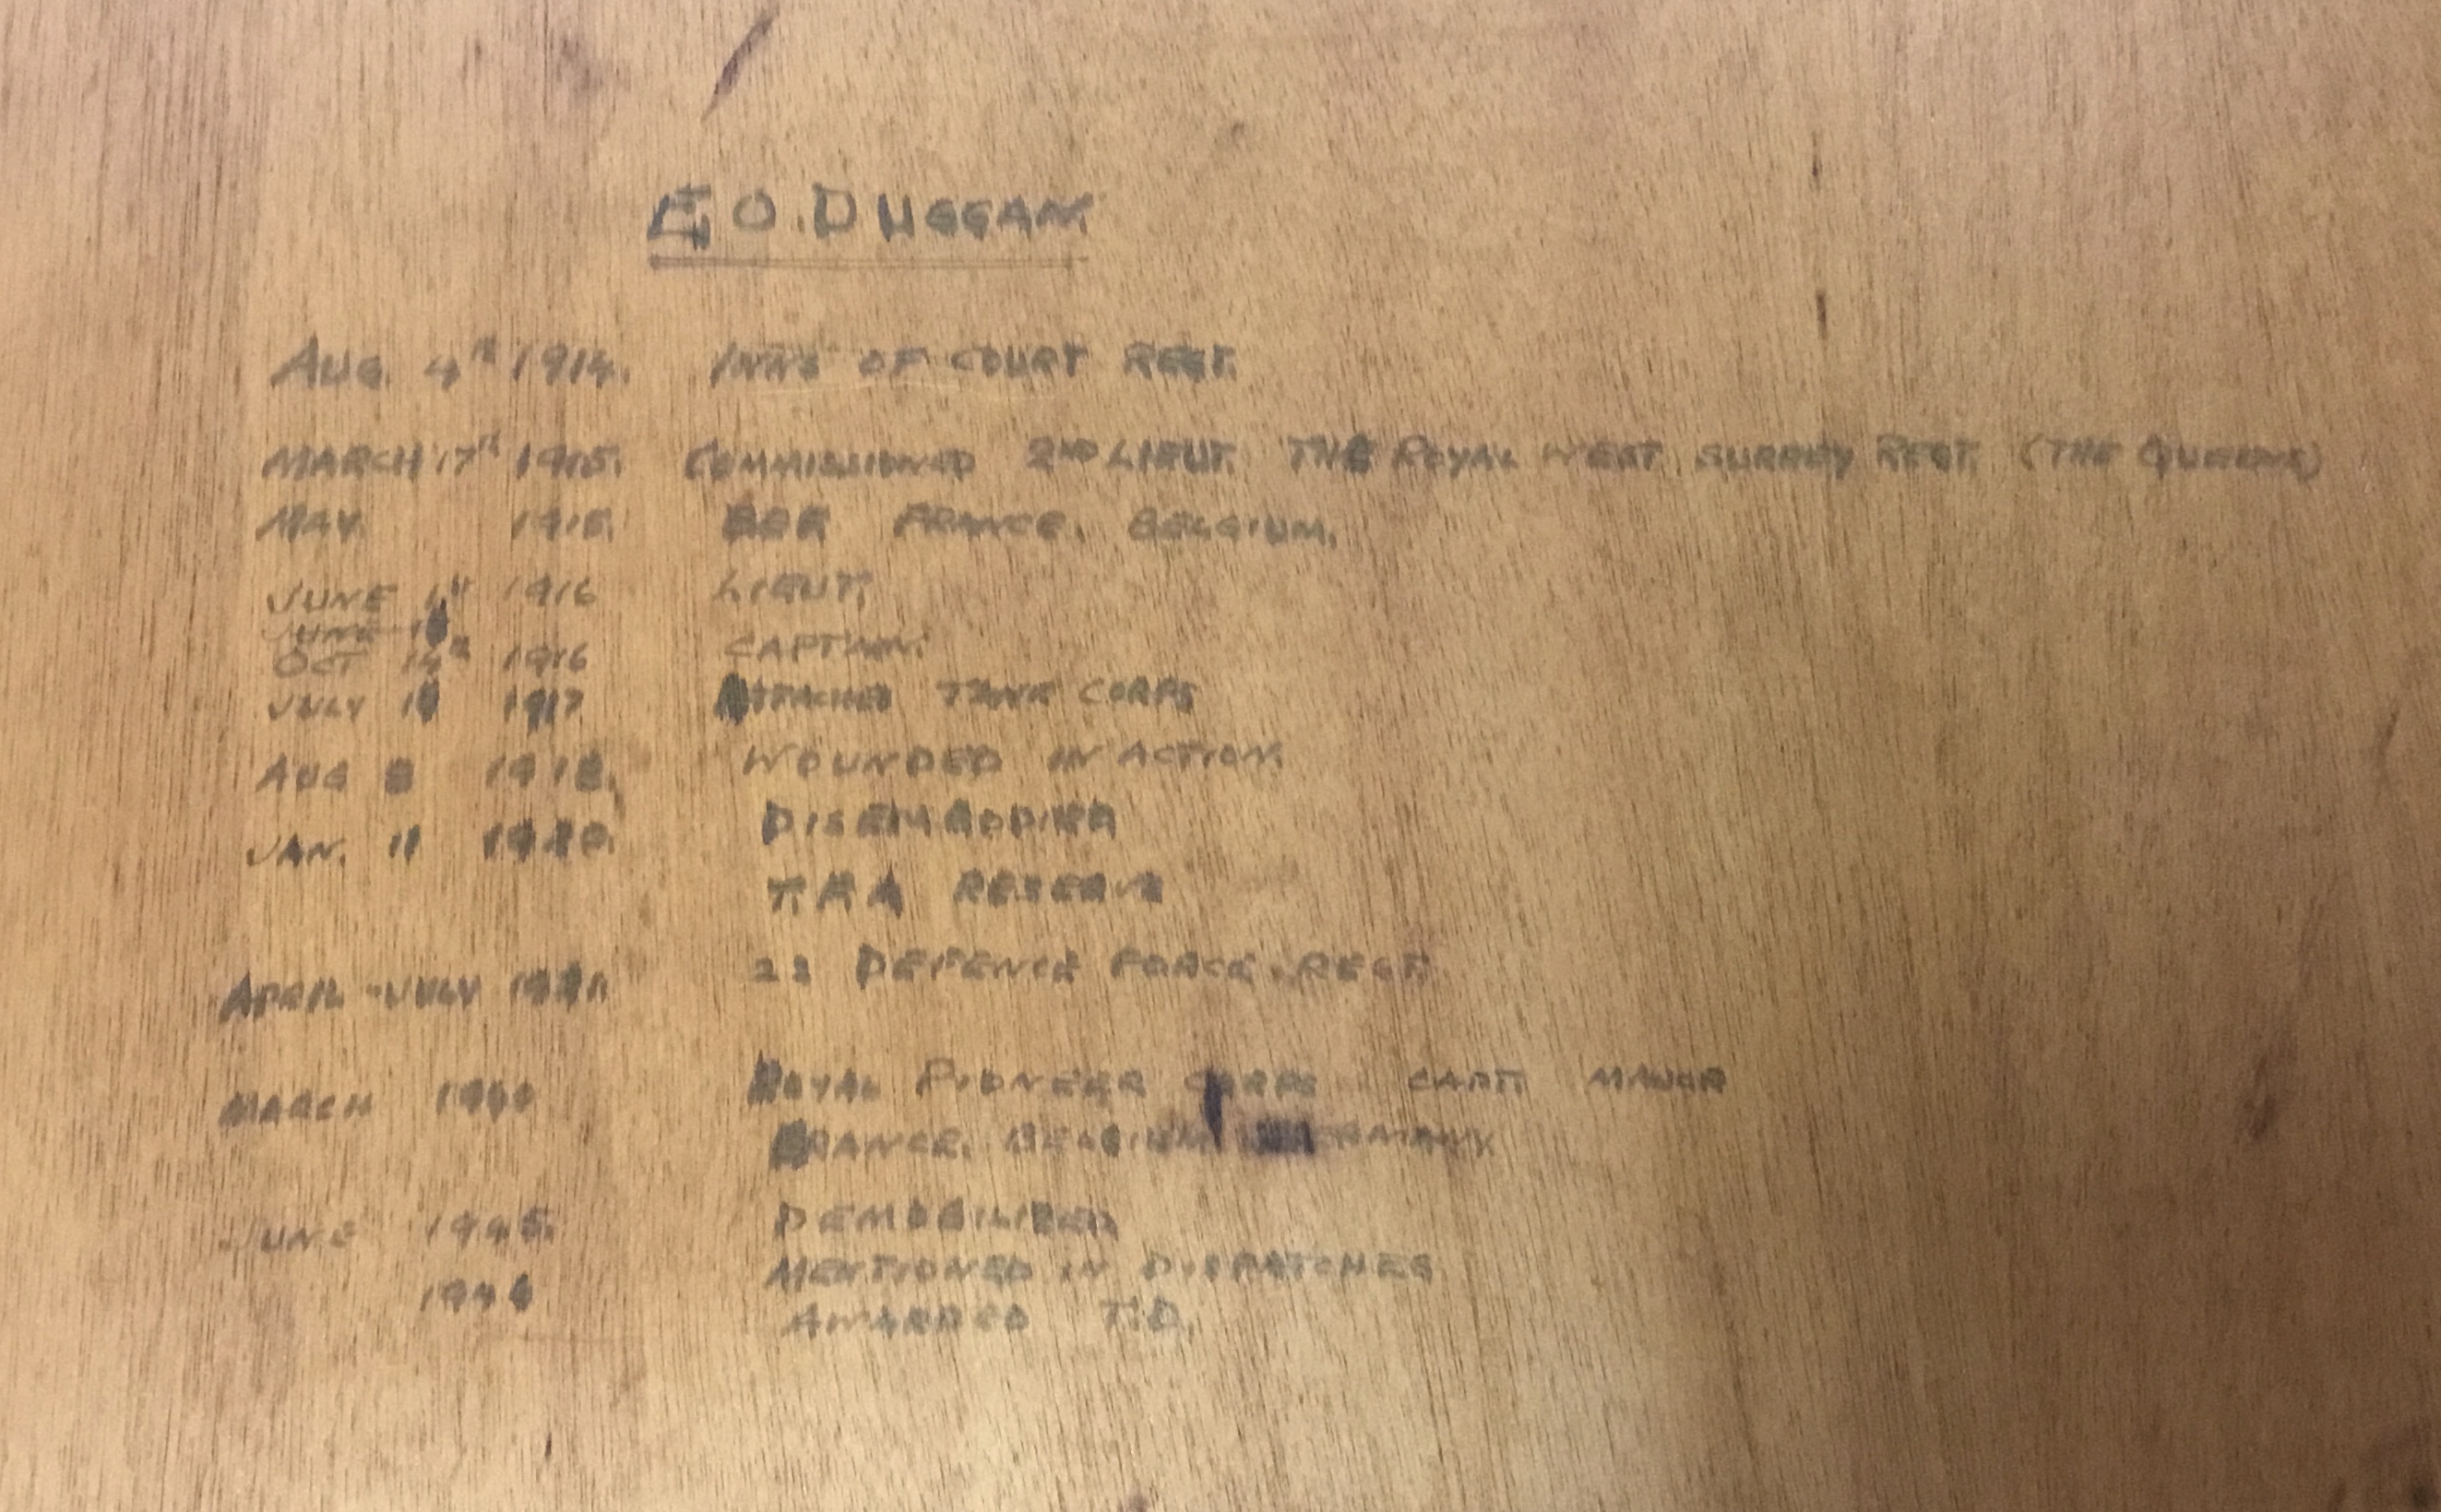 E O. DUGGAN
AUG. 4TH 1914. INNS OF COURT REGT.
MARCH 17TH 1915. COMMISSIONED 2ND LIEUT. THE ROYAL WEST SURREY REGT. (THE QUEENS)
MAY 1915. FRANCE. BELGIUM.
JUNE 1916 LIEUT.
JUNE
OCT 14TH 1916 CAPTAIN.
JULY 1917 ATTACHED TANK CORPS
AUG 8 1918. WOUNDED IN ACTION.
JAN. 11 1920. DISEMBODIED
RESERVE
APRIL - JULY 1921. 22 DEFENCE FORCE. REGT.
MARCH 1940 ROYAL PIONEER CORPS CAPT. MAJOR
FRANCE. BELGIUM GERMANY.
JUNE 1945. DEMOBILIZED
MENTIONED IN DISPATCHES
1946 AWARDED T.D.